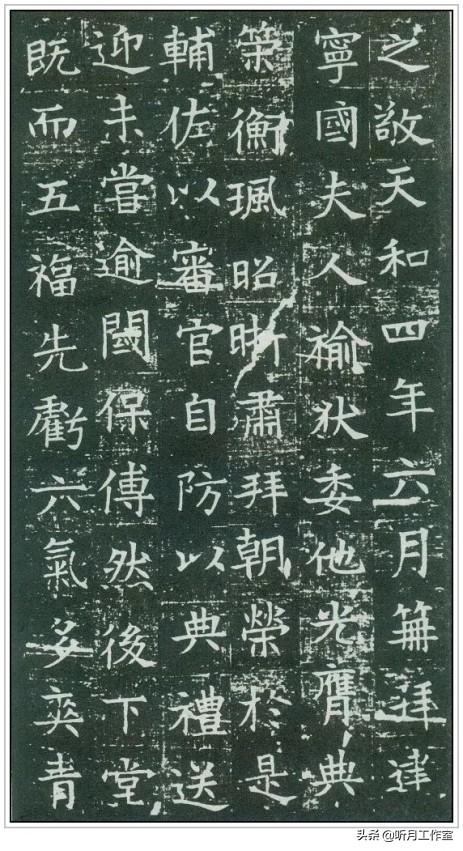 之敬天和四年六月笧拜建
寧國夫人褕狄委他光膺典
策衡珮昭晰肅拜朝榮於是
輔佐以審官自防以典禮送
迎未嘗逾閾保傅然後下堂
既而五福先虧六氣多爽青
头条 @听月工作室